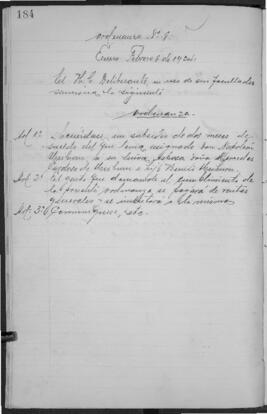 184
Ordenanza Nº 8.
Enero Febrero 6 de 1924.
El H. C. Deliberante, en uso de sus facultades
sanciona la siguiente
Ordenanza
Art. 1º Acuérdase un subsidio de dos meses de
sueldo del que tenía asignado don Napoleón
a su señora esposa doña
de
Art. 2º El gasto que demande el cumplimiento de
la presente ordenanza se pagará de rentas
generales y se imputará a la misma
Art. 3º Comuníquese, etc.